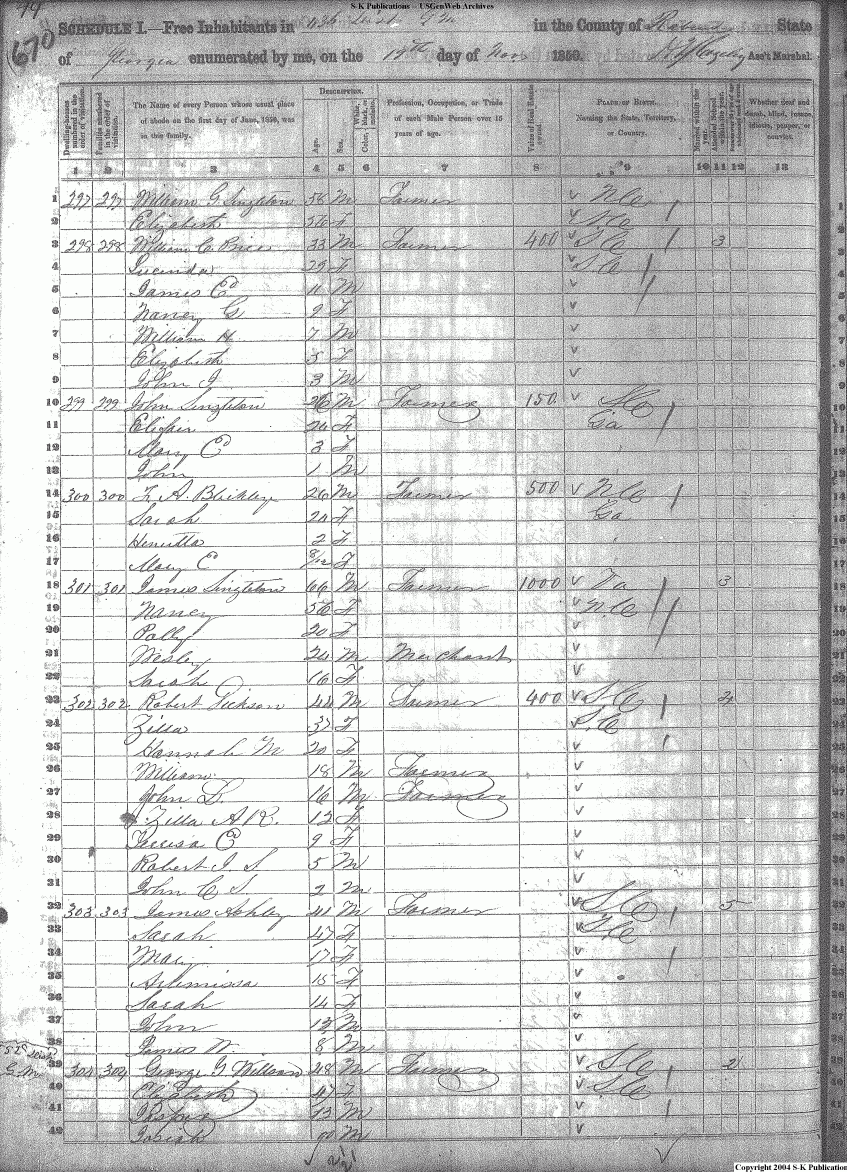 S-K Publications -- USGenWeb Archives
SCHEDULE I.—Free Inhabitants in Dist G M in the County of Rabun State
of Georgia enumerated by me, on the 19th day of Nov 1850. Ass't Marshal.
670
Description.
Dwelling-houses numbered in the order of visitation.
Families numbered in the order of visitation.
The Name of every Person whose usual place of abode on the first day of June, 1850, was in this family.
Age.
Sex.
Color, White, black, or mulatto.
Profession, Occupation, or Trade of each Male Person over 15 years of age.
Value of Real Estate owned.
Place of Birth. Naming the State, Territory, or Country.
Married within the year.
Attended School within the year.
Whether deaf and dumb, blind, insane, idiotic, pauper, or convict.
1 2 3 4 5 6 7 8 9 10 11 12 13
1 297 297 William G Singleton 58 M Farmer N.C.
2 Elizabeth F
3 298 298 William C Price 33 M Farmer 400 S.C. 3
4 Lucinda 29 F S.C.
5 James E 11 M
6 Nancy G 9 F
7 William H 7 M
8 Elizabeth 5 F
9 John J 3 M
10 299 299 John Singleton 26 M Farmer 150
11 24 F Ga
12 Mary E 3 F
13 John 1 M
14 300 300 26 M Farmer 500 N.C.
15 Sarah 24 F Ga
16 Henretta 2 F
17 Mary E 8/12 F
18 301 301 James Singleton 66 M Farmer 1000 Va 3
19 Nancy 56 F N.C.
20 Polly 20 F
21 Wesley 24 M Merchant
22 Sarah 16 F
23 302 302 Robert Dickson 44 M Farmer 400 S.C.
24 Zilla 37 F S.C.
25 Hannah M 20 F
26 William 18 M Farmer
27 John L. 16 M Farmer
28 Zilla A R. 12 F
29 E 9 F
30 Robert J S 5 M
31 John C S 2 M
32 303 303 James Ashley 41 M Farmer S.C. 5
33 Sarah 47 F
34 17 F
35 Artimissa 15 F
36 Sarah 14 F
37 John M
38 James W 8 M
39 304 304 George G William 48 M Farmer S.C. 2
40 Elizabeth 47 F S.C.
41 13 M
42 Josiah M
Copyright 2004 S-K Publications